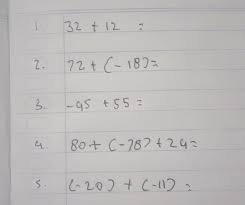 1. 32 + 12 =
2. 72 + (-18)=
3. -45 +55 =
4. 80+ (-78) +24=
5. (-20) + (-11) =